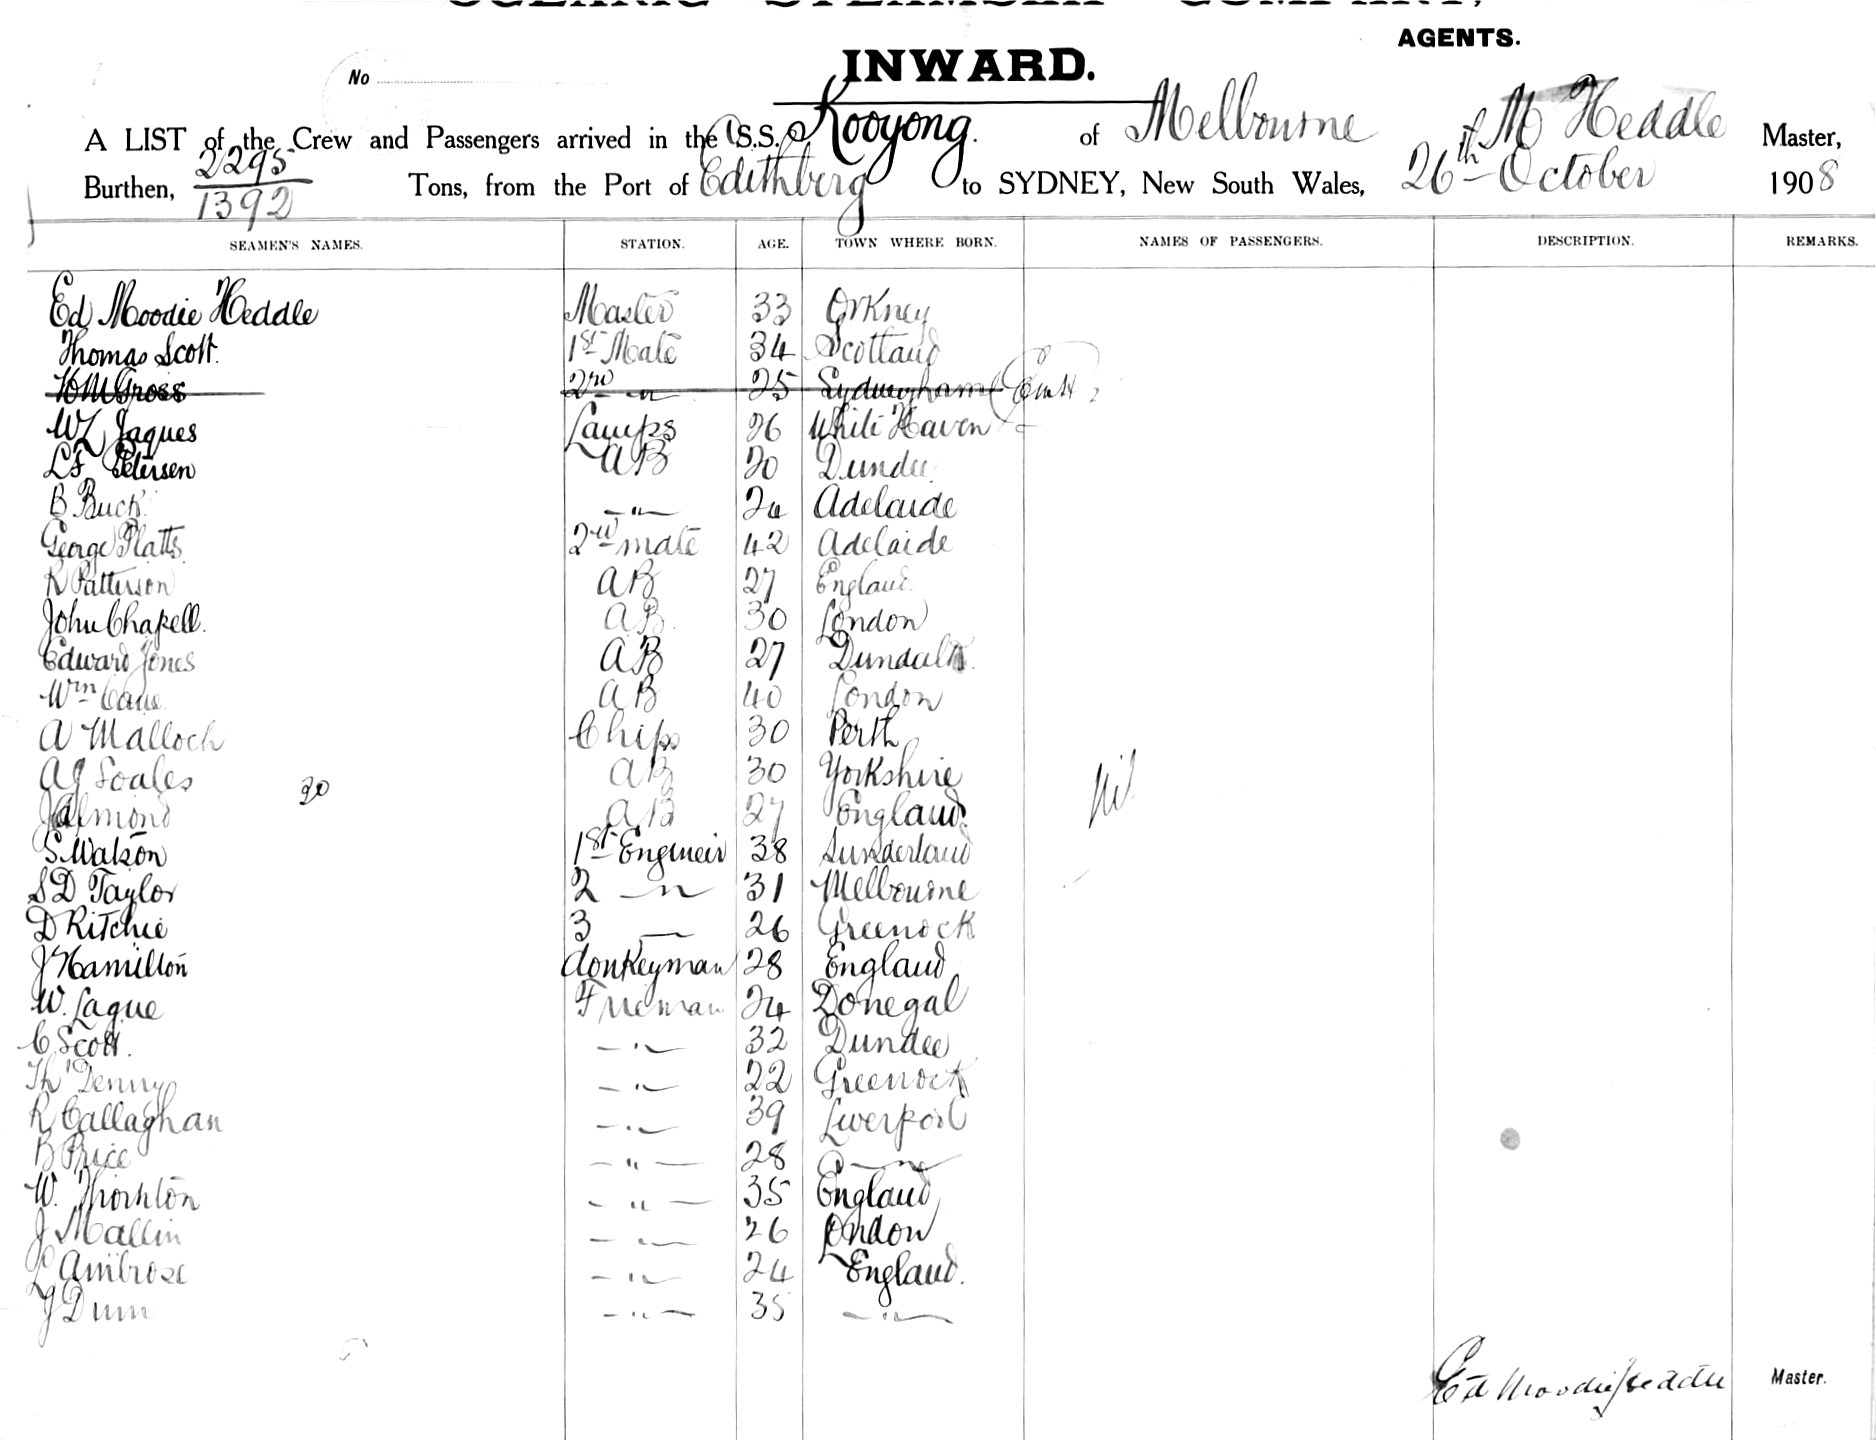 OCEANIC STEAMSHIP COMPANY,
AGENTS.
INWARD.
No
A LIST of the Crew and Passengers arrived in the S.S. Kooyong. of Melbourne M Heddle Master,
Burthen, 2295 / 1392 Tons, from the Port of Edithberg to SYDNEY, New South Wales, 26th October 1908
SEAMEN'S NAMES. STATION. AGE. TOWN WHERE BORN. NAMES OF PASSENGERS. DESCRIPTION. REMARKS.
Ed Moodie Heddle Master 33 Orkney
Thomas Scott. 1st Mate 34 Scotland
Gross 2nd " 25 EmH
WL Jaques Lamps 26 White Haven
LF Petersen AB 20 Dundee
B Buck " 24 Adelaide
George Platts 2nd mate 42 Adelaide
R Patterson AB 27 England.
John Chapell. AB. 30 London
Edward Jones AB 27 Dundalk.
Wm Cane AB 40 London
A Malloch Chips 30 Perth
AJ Soales 30 AB 30 Yorkshire
J Almond AB 27 England. Nil
S Watson 1st Engineir 38 Sunderland
SD Taylor 2 " 31 Melbourne
D Ritchie 3 — 26 Greenock
J Hamilton donkeyman 28 England
W. Lague Fireman 24 Donegal
C Scott. " 32 Dundee
Th Denny " 22 Greenock
R Callaghan " 39 Liverpool
B Price " 28 "
W. Thornton " 35 England
J Mallin " 26 London
L Ambrose " 24 England.
J Dunn " 35 "
Ed Moodie Heddle Master.